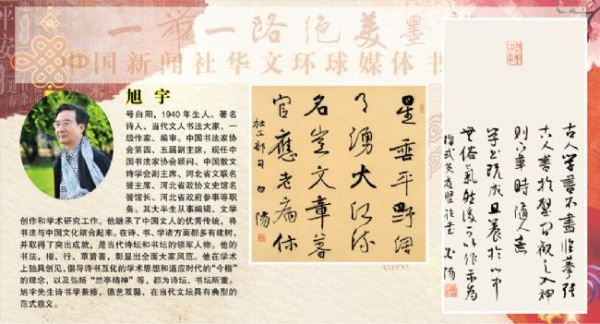 一带一路绝美墨
中国新闻社华文环球媒体书
旭 宇
号白阳，1940 年生人。著名
诗人、当代文人书法大家、一
级作家、编审。中国书法家协
会第四、五届副主席，现任中
国书法家协会顾问、中国散文
诗学会副主席、河北省文联名
誉主席、河北省政协文史馆名
誉馆长、河北省政府参事等职
务。其大半生从事编辑、文学
创作和学术研究工作。他继承了中国文人的优秀传统，将
书法与中国文化结合起来，在诗、书、学诸方面都多有建树，
并取得了突出成就，是当代诗坛和书坛的领军人物。他的
书法，楷、行、草皆善，彰显出全面大家风范。他在学术
上独具创见，倡导诗书互化的学术思想和适应时代的“今楷”
的理念，以及弘扬“兰亭精神”等，都为诗坛、书坛所重。
旭宇先生诗书学兼修，德艺双馨，在当代文坛具有典型的
范式意义。
星垂平野闊
月湧大江流
名豈文章著
官應老病休
杜工部句 白陽
古人學書不盡臨摹張
古人書於壁間觀之入神
則下筆時隨人意
學書既成且養於心中
無俗氣然後可以作示為
楷式 黃庭堅論書 白陽